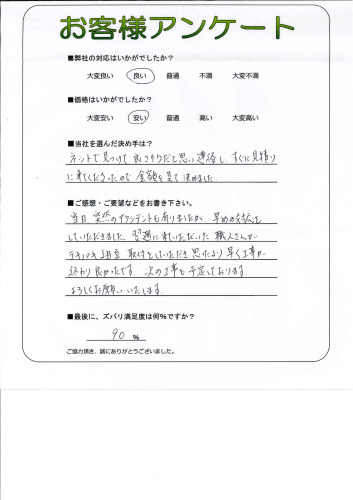 お客様アンケート
■弊社の対応はいかがでしたか?
大変良い 良い 普通 不満 大変不満
■価格はいかがでしたか?
大変安い 安い 普通 高い 大変高い
■当社を選んだ決め手は?
ネットで見つけて良さそうだと思い連絡し、すぐに見積り
に来てくださったので金額を見て決めました。
■ご感想・ご要望などをお書き下さい。
当日、突然のアクシデントも有りましたが、早めの対応を
していただきました。翌週に来ていただいた職人さんが
テキパキ組立 取付をしていただき思ったより早く工事が
終わり良かったです。次の工事も予定しております。
よろしくお願いいたします。
■最後に、ズバリ満足度は何%ですか?
90 %
ご協力頂き、誠にありがとうございました。